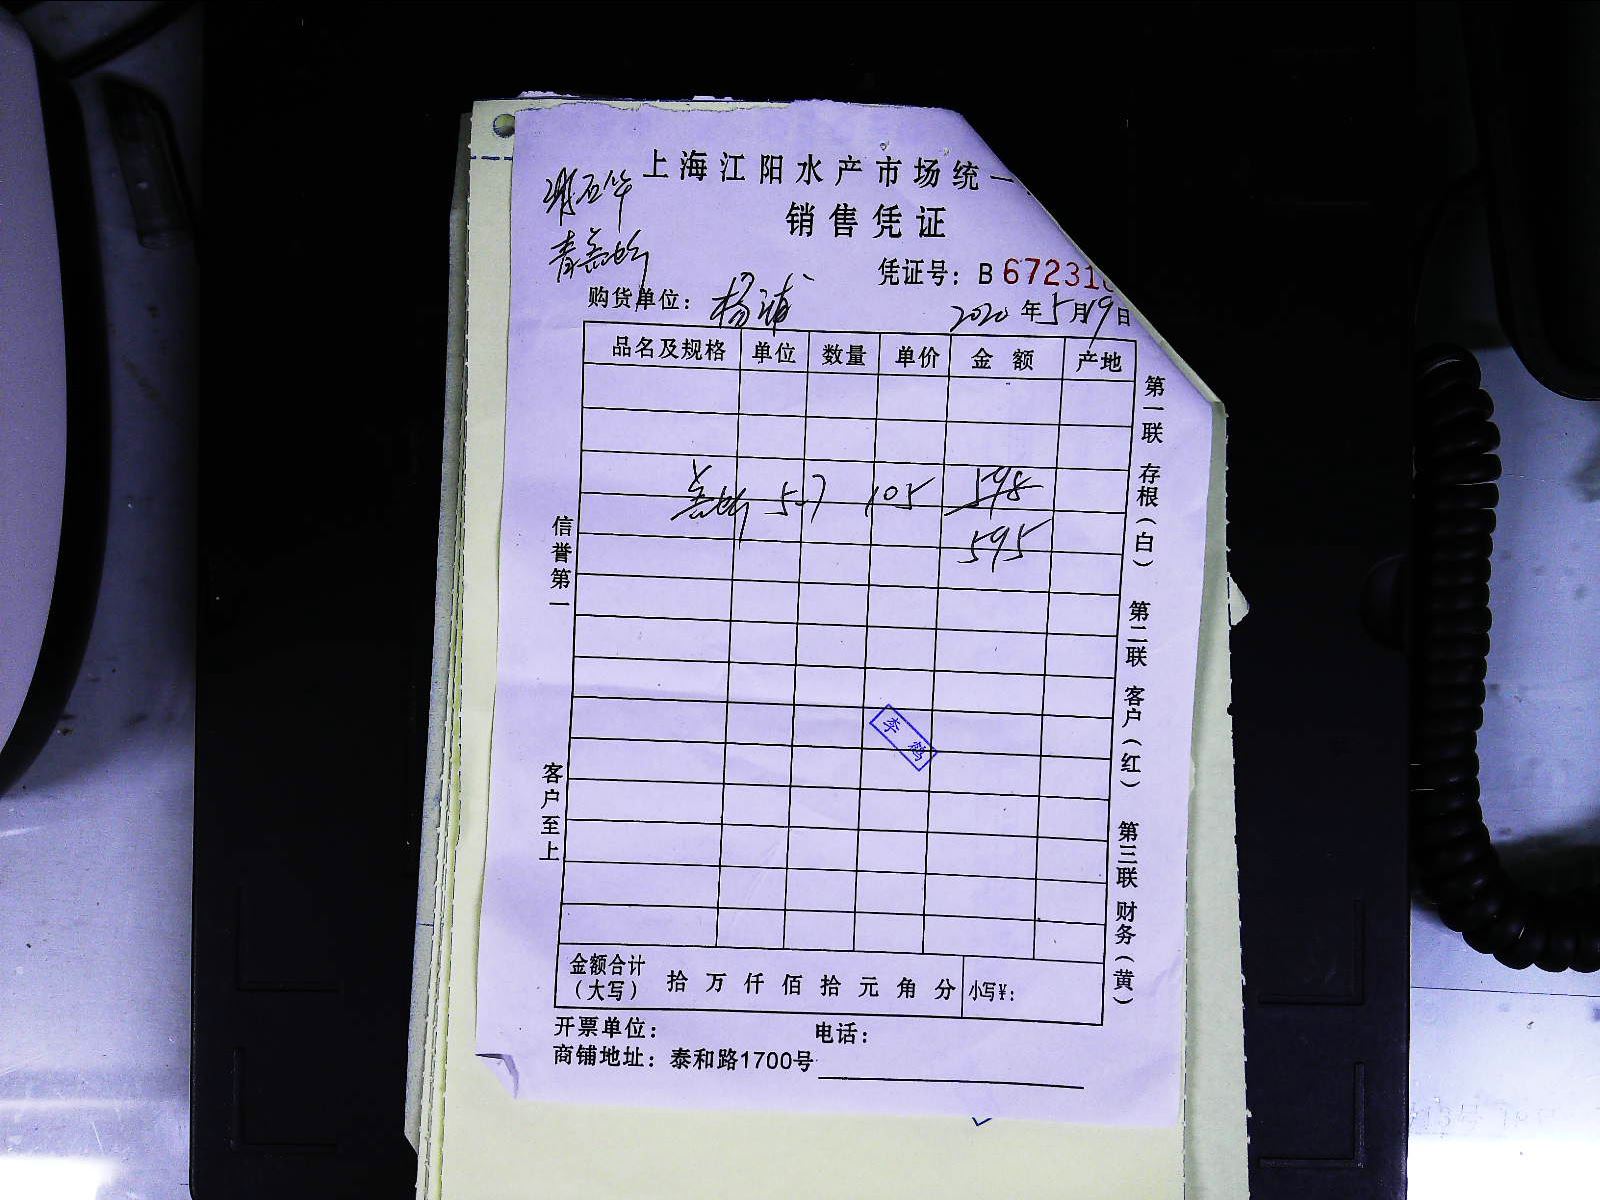 上海江阳水产市场统一
销售凭证
凭证号：B 67231
购货单位：杨浦 2020年5月19日
品名及规格 单位 数量 单价 金额 产地
5.7 105 598
595
信誉第一
客户至上
第一联 存根（白）
第二联 客户（红）
第三联 财务（黄）
李鹤
金额合计（大写） 拾 万 仟 佰 拾 元 角 分 小写¥：
开票单位： 电话：
商铺地址：泰和路1700号